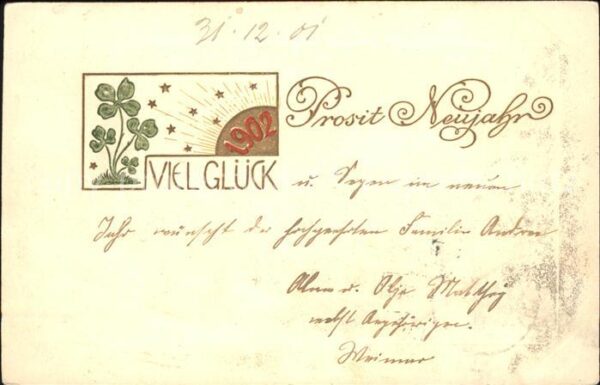 31.12.01
Prosit Neujahr
1902
VIEL GLÜCK u. Segen im neuen
Jahr wünscht der hochgeehrten Familie
Olga
nebst Angehörigen.
Weimar